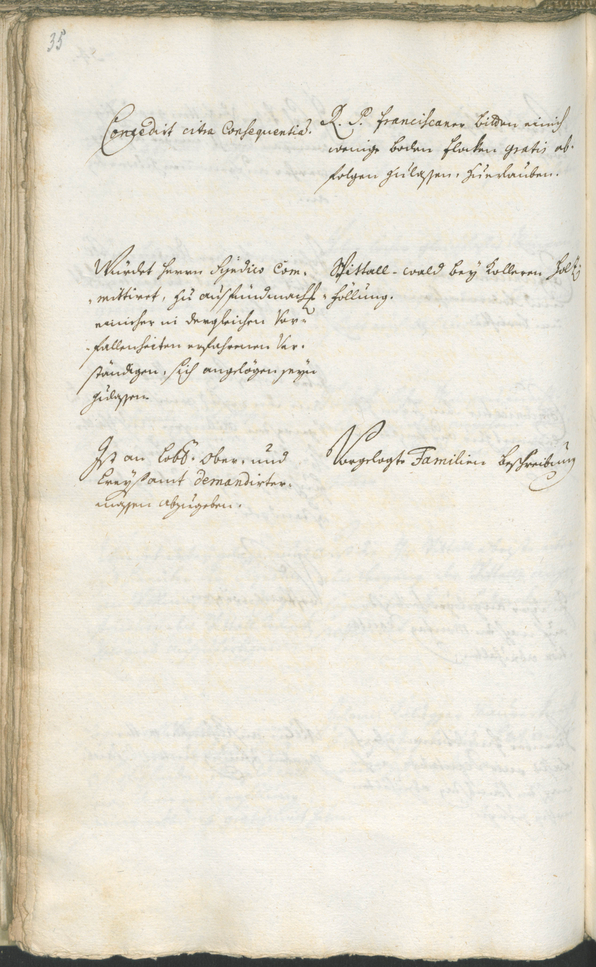 35
Concedirt citra Consequentiã.
R. P. Franciscaner bitten einich
wenige boden flecken gratis ab-
folgen zu lassen, zu erlauben.
Würdet Herrn Syndico Com-
mittiret, zu ausfündmach
einicher in dergleichen Vor-
fallenheiten erfahrenen Ver-
ständigen, sich angelegen seyn
zulassen
Spittall-wald bey Kolleren Holtz
höllung.
Ist an Löbl. Ober- und
Creysamt demandirter-
massen abzugeben.
Vorgelegte Familien beschreibung